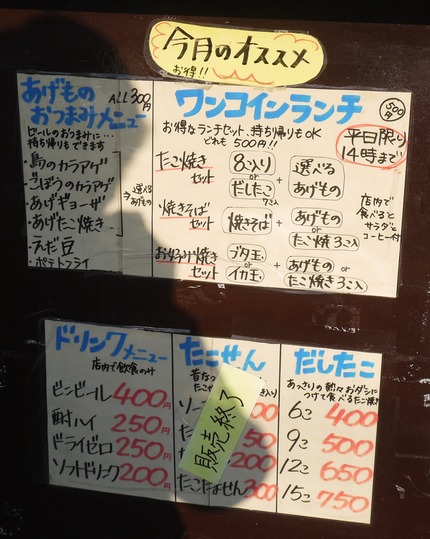 今月のオススメ
お得!!
あげもの
おつまみメニュー
ALL300円
ビールのおつまみに…
持ち帰りもできます
・鳥のカラアゲ
・ごぼうのカラアゲ
・あげギョーザ
・あげたこ焼き
・えだ豆
・ポテトフライ
選べる
あげもの
ワンコインランチ
500円
お得なランチセット、持ち帰りもOK
どれも500円!!
平日限り
14時まで
たこ焼き
セット
8コ入り
or
だしたこ
7コ入
+
選べる
あげもの
焼きそば
セット
焼きそば
+
あげもの
or
たこ焼3コ入
お好み焼き
セット
ブタ玉
or
イカ玉
+
あげもの
or
たこ焼き3コ入
店内で
食べると
サラダと
コーヒー付
ドリンクメニュー
店内で飲食のみ
ビンビール400円
酎ハイ250円
ドライゼロ250円
ソフトドリンク200円
たこせん
昔なつ
たこや
入り
ソー
00
た
50
200
たこたません300
販売終了
だしたこ
あっさりの熱々おダシに
つけて食べるたこ焼き
6コ 400
9コ 500
12コ 650
15コ 750